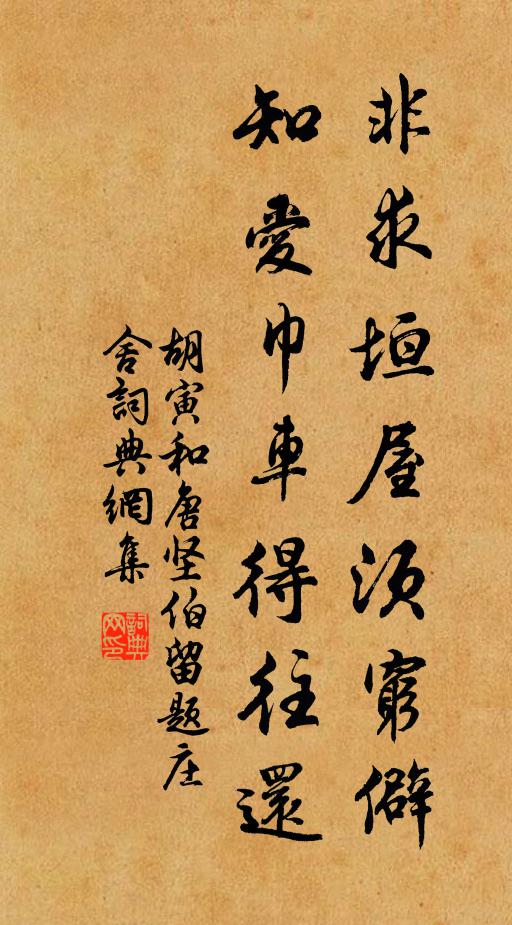 非求垣屋須窮僻
知愛巾車得往還
胡寅和唐坚伯留题庄
舍詞典網集
詞典網印